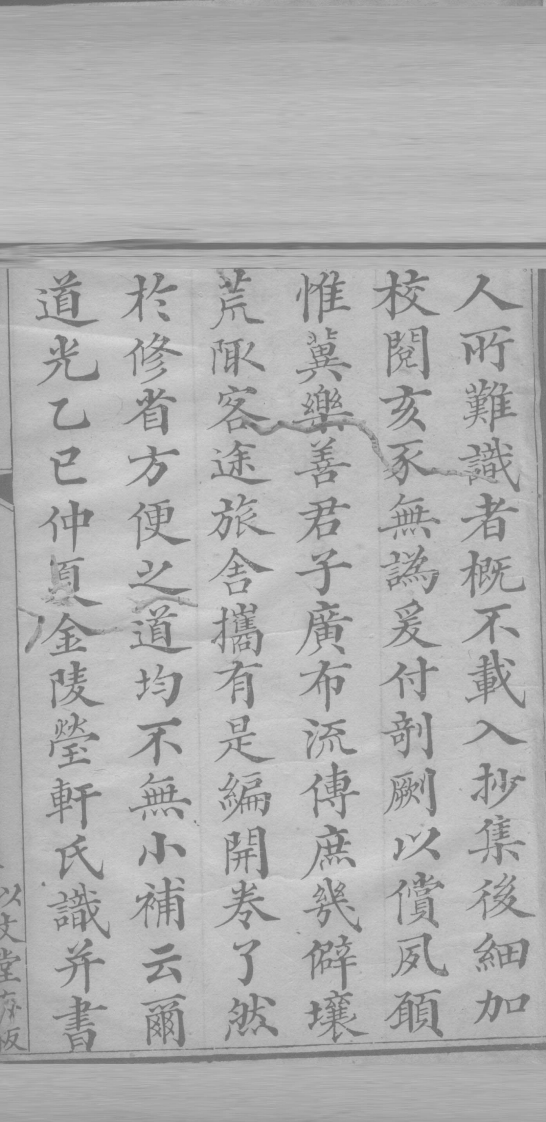 人所難識者概不載入抄集後細加
校閱亥豕無譌爰付剞劂以償夙願
惟冀樂善君子廣布流傳庶幾僻壤
荒陬客途旅舍攜有是編開卷了然
於修省方便之道均不無小補云爾
道光乙巳仲夏金陵瑩軒氏識并書
以文堂存板